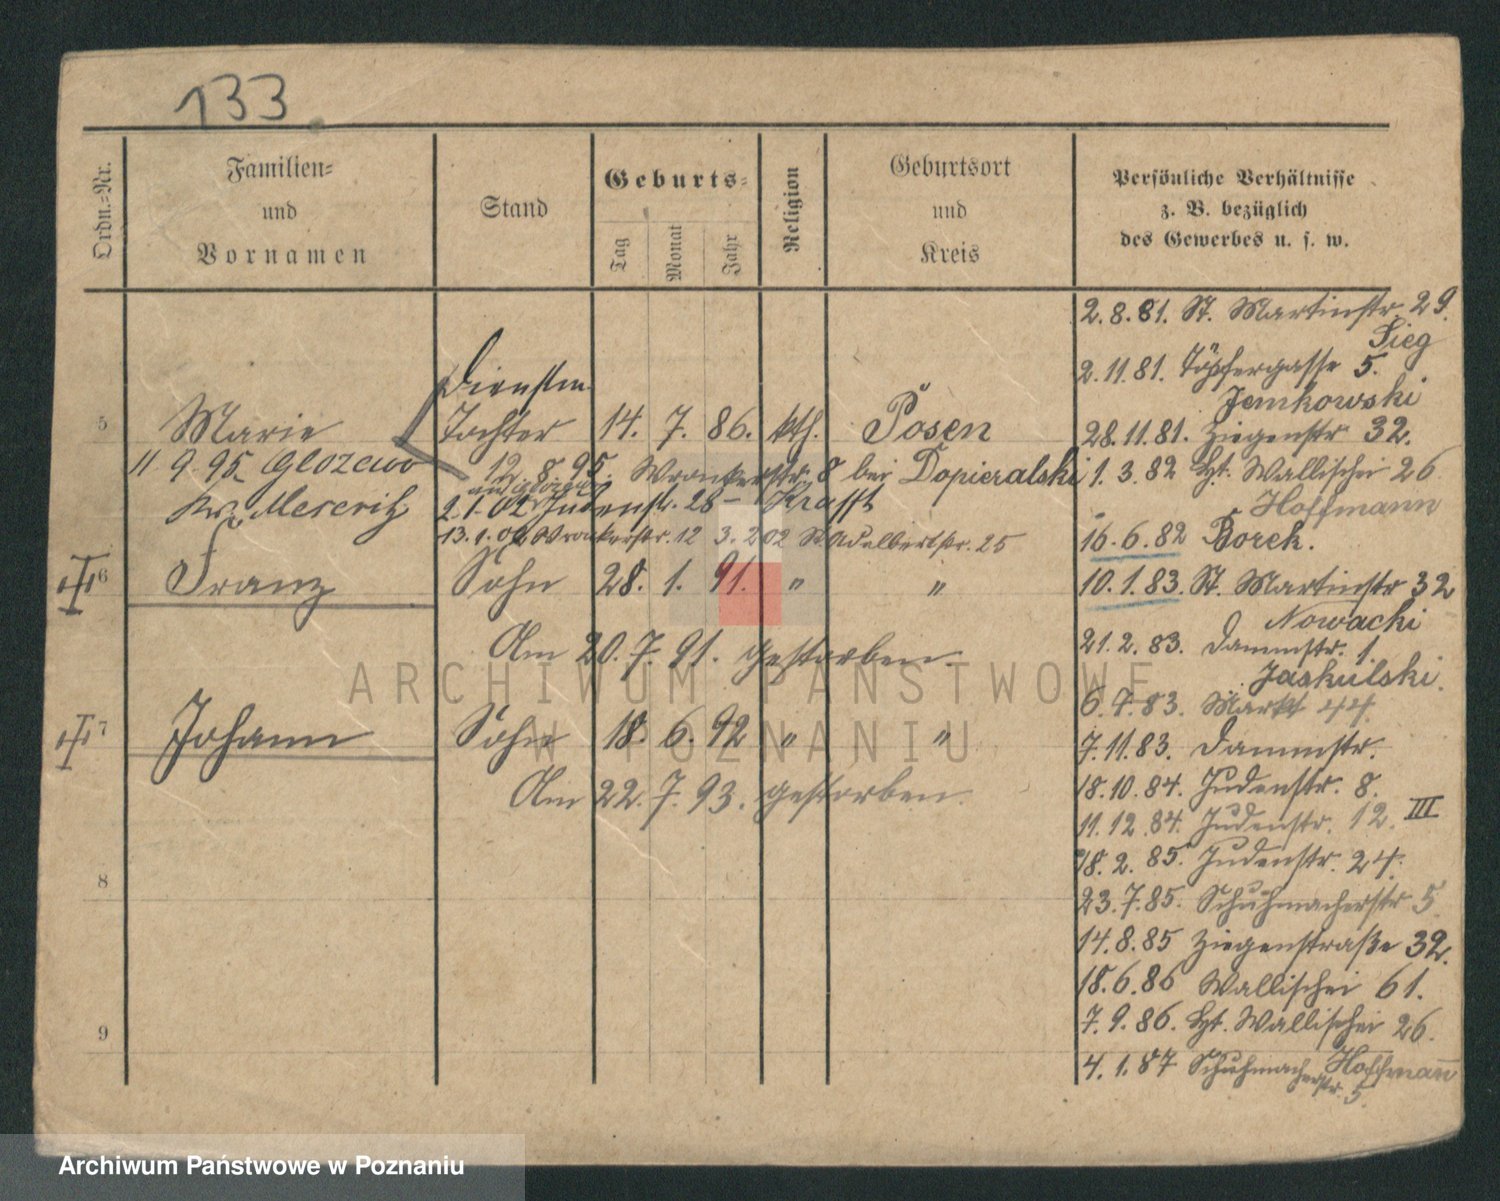 133
Ordn.-Nr.
Familien-
und
Vornamen
Stand
Geburts-
Tag
Monat
Jahr
Religion
Geburtsort
und
Kreis
Persönliche Verhältnisse
z. B. bezüglich
des Gewerbes u. s. w.
5
Dienstm.
Marie Tochter 14. 7. 86. kth. Posen
11 9. 95. Glozewo 12. 8. 95. Wronkerstr. 8 bei Dopieralski
Kr. Meseritz 2.1.02 Judenstr. 28 – Krafft
13.1.02 Wronkerstr. 12 3. 2 02 St Adelbertstr. 25
6 Franz Sohn 28. 1. 91. " "
Am 20. 7. 91. gestorben.
7 Johann Sohn 18. 6. 92 " "
Am 22. 7. 93. gestorben.
8
9
2.8.81. St. Martinstr. 29.
Sieg
2.11.81. Töpfergasse 5.
Jemkowski
28.11.81. Ziegenstr 32.
1.3.82 Ht. Wallischei 26
Hoffmann
16.6.82 Borch.
10.1.83. St. Martinstr 32
Nowacki
21.2.83. Dammstr. 1.
Jaskulski.
6.7.83. Markt 44.
7.11.83. Dammstr.
18.10.84. Judenstr. 8.
11.12.84. Judenstr. 12. III
18.2.85. Judenstr. 24.
23.7.85. Schuhmacherstr 5
14.8.85 Ziegenstraße 32.
18.6.86 Wallischei 61.
7.9.86. Ht. Wallischei 26.
Hoffmann
4.1.87 Schuhmacherstr. 5.
ARCHIWUM PAŃSTWOWE
W POZNANIU
Archiwum Państwowe w Poznaniu